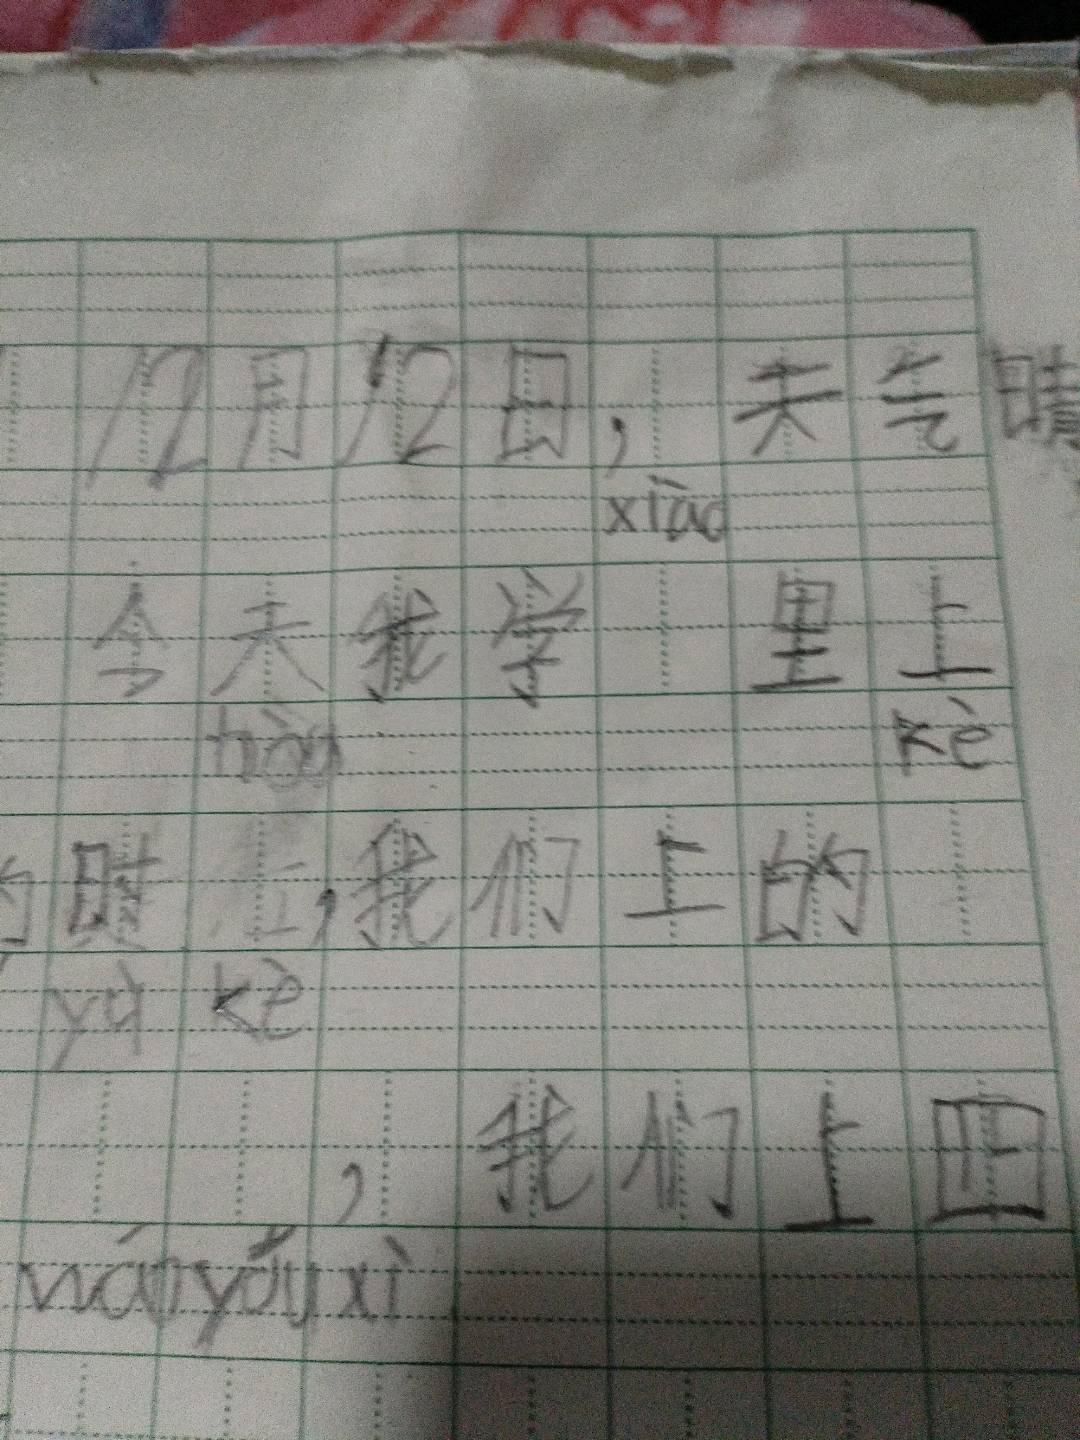 12月12日，天气晴
xiào
今天我学 里上
hòu kè
的时 ，我们上的
yǔ kè
，我们上四
wán yóu xì